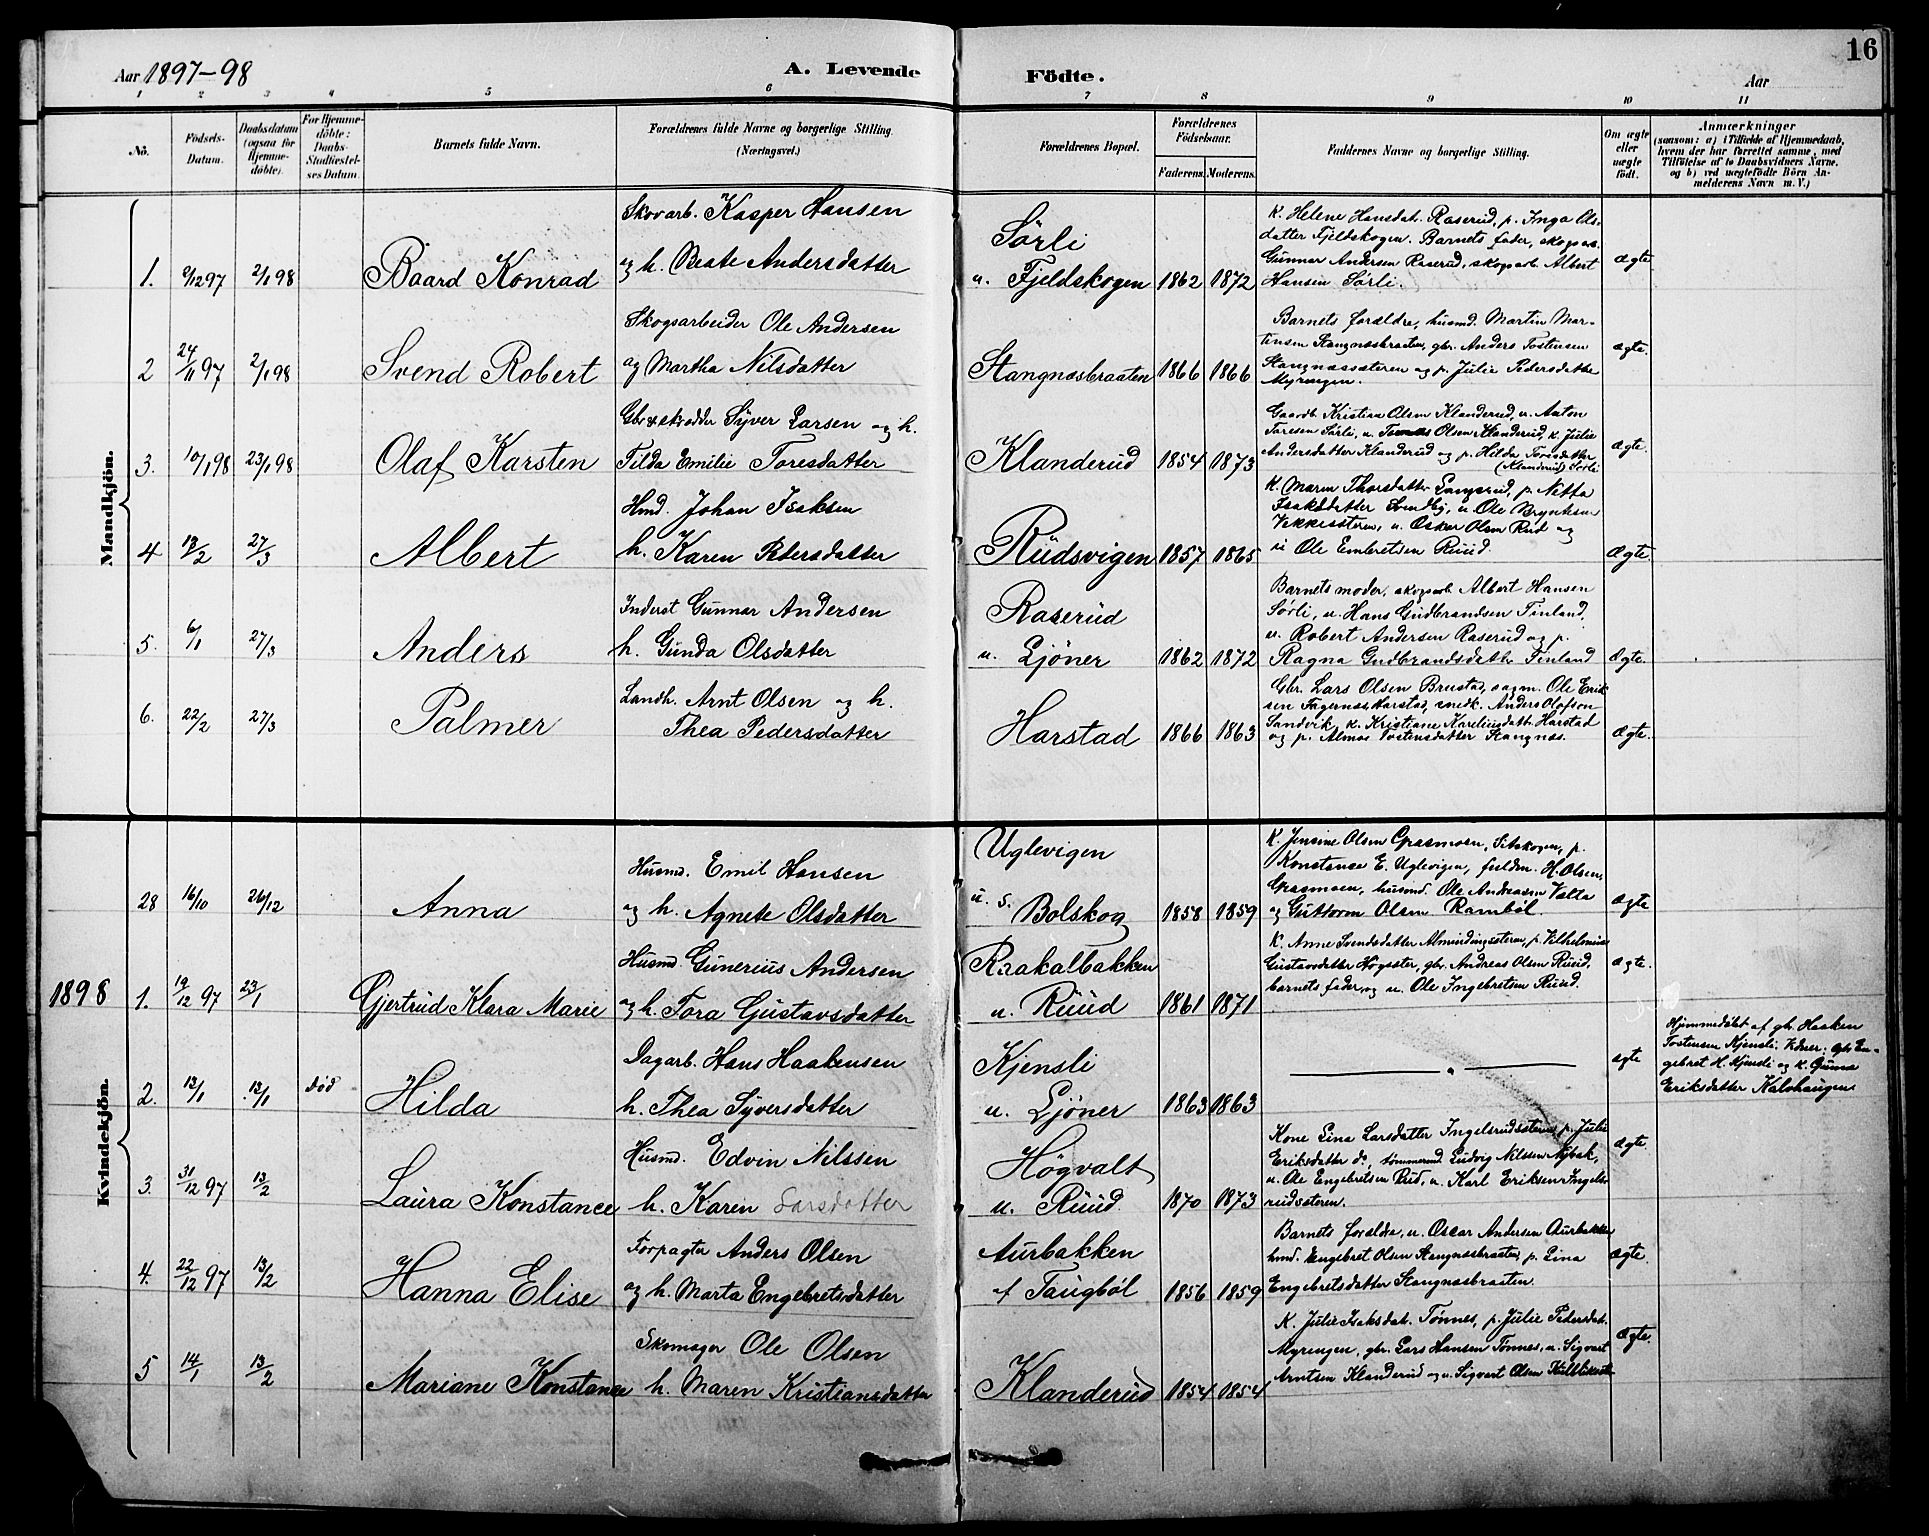 16
Aar 1897-98 A. Levende Födte. Aar
1 2 3 4 5 6 7 8 9 10 11
No. Födsels-Datum. Daabsdatum (ogsaa for Hjemme-döbte). For Hjemme-döbte: Daabs-Stadfæstel-ses Datum. Barnets fulde Navn. Forældrenes fulde Navne og borgerlige Stilling. (Næringsvei.) Forældrenes Bopæl. Forældrenes Födselsaar. Faderens. Moderens. Faddernes Navne og borgerlige Stilling. Om ægte eller uægte födt. Anmærkninger (saasom: a) i Tilfælde af Hjemmedaab, hvem der har forrettet samme, med Tilföielse af to Daabsvidners Navne, og b) ved uægtefödte Börn An-melderens Navn m. V.)
Mandkjön.
Skovarb. Kasper Hansen
1. 9/12 97 2/1 98 Baard Konrad og h. Beate Andersdatter
Sörli
u. Fjeldskogen 1862 1872
K. Helene Hansdat. Raserud, p. Inga Ols-
datter Fjeldskogen. Barnets fader, skogsarb.
Gunnar Andersen Raserud, skogsarb. Albert
Hansen Sörli.
ægte
Skogsarbeider Ole Andersen
2 24/11 97 2/1 98 Svend Robert og Martha Nilsdatter
Stangnæsbraaten 1866 1866
Barnets forældre, husmd. Martin Mar-
tinsen Stangnæsbraaten, gbr. Anders Tostensen
Stangnæssæteren og p. Julie Pedersdatter
Myrengen.
ægte.
Gbr & skrædder Syver Larsen og h.
3. 10/1 98 23/1 98 Olaf Karsten Tilda Emilie Toresdatter
Klanderud 1854 1873
Gaardb. Kristian Olsen Klanderud, u. Anton
Toresen Sörli, u. Tomas Olsen Klanderud, k. Julie
Andersdatter Klanderud og p. Hilda Toresdatter
(Klanderud) Sörli
ægte.
Hmd. Johan Isaksen
4 13/2 27/3 Albert h. Karen Petersdatter
Rudsvigen 1857 1865
K. Maren Thorsdatter Langerud, p. Netta
Isaksdatter Sundby, u. Ole Brynhisen
Vekkesæteren, u. Oskar Olsen Rud og
u Ole Embretsen Ruud.
Ægte
Inderst Gunnar Andersen
5. 6/1 27/3 Anders h. Gunda Olsdatter
Raserud
u. Ljöner 1862 1872
Barnets moder, skogsarb. Albert Hansen
Sörli, u. Hans Gudbrandsen Finland,
u. Robert Andersen Raserud og p.
Ragna Gudbrandsdatter Finland
Ægte.
Landh. Arnt Olsen og h.
6. 22/2 27/3 Palmer Thea Pedersdatter
Harstad 1866 1863
Gbr. Lars Olsen Brustad, sagm. Ole Erik
sen Fagernes Harstad, snedk. Anders Olofson
Sandvik, k. Kristiane Karelinsdatt. Harstad
og p. Alma Tostensdatter Stangnæs.
Ægte.
Kvindekjön.
Husmd. Emil Hansen
28 16/10 26/12 Anna og h. Agnete Olsdatter
Uglevigen
u. s. Bolskog 1858 1859
K. Jensine Olsen Græsmoen, Setskogen, p.
Konstance E. Uglevigen, H. Olsen
Græsmoen, husmd. Ole Andreasen Valta
og Guttorm Olsen Ramböl.
ægte
Husmd. Gunerius Andersen
1898 1. 19/12 97 23/1 Gjertrud Klara Marie og h. Tora Gustavsdatter
Raakalbakken
u. Ruud 1861 1871
K. Anne Svendsdatter Almindingsæteren, p. Vilhelmine
Gustavsdatter Högsæter, gbr. Andreas Olsen Ruud,
barnets fader, og u. Ole Ingebretsen Ruud.
ægte.
Dagarb. Hans Haakensen
2. 13/1 13/1 död Hilda h. Thea Syversdatter
Kjensli
u. Ljöner 1863 1863
— " —
ægte
Hjemmedöbt af gb. Haaken
Tostensen Kjensli. Vidner: gbr En-
gebret H. Kjensli og k. Gunna
Eriksdatter Kalvhaugen
Husmd. Edvin Nilssen
3. 31/12 97 13/2 Laura Konstance h. Karen Larsdatter
Högvalt
u. Ruud. 1870 1873
Kone Lina Larsdatter Ingelsrudsæteren, p. Julie
Eriksdatter do, tömmermd. Ludvig Nilssen Nybak,
u. Ole Engebretsen Rud, u. Karl Eriksen Ingels-
rudsæteren.
Ægte
Forpagter Anders Olsen
4. 22/12 97 13/2 Hanna Elise og h. Marta Engebretsdatter
Aurbakken
af Taugböl 1856 1859
Barnets forældre, u. Oscar Andersen Aurbakken
hmd. Engebret Olsen Stangnæsbraaten, p. Lina
Engebretsdatter Stangnæsbraaten.
Ægte.
Skomager Ole Olsen
5 14/1 13/2 Mariane Konstance h. Maren Kristiansdatter
Klanderud 1854 1854
K. Julie Isaksdat. Tönnes, p. Julie Pedersdat.
Myrengen, gbr. Lars Hansen Tönnes, u. Sigvart
Arntsen Klanderud og u. Sigvart Olsen
Ægte.